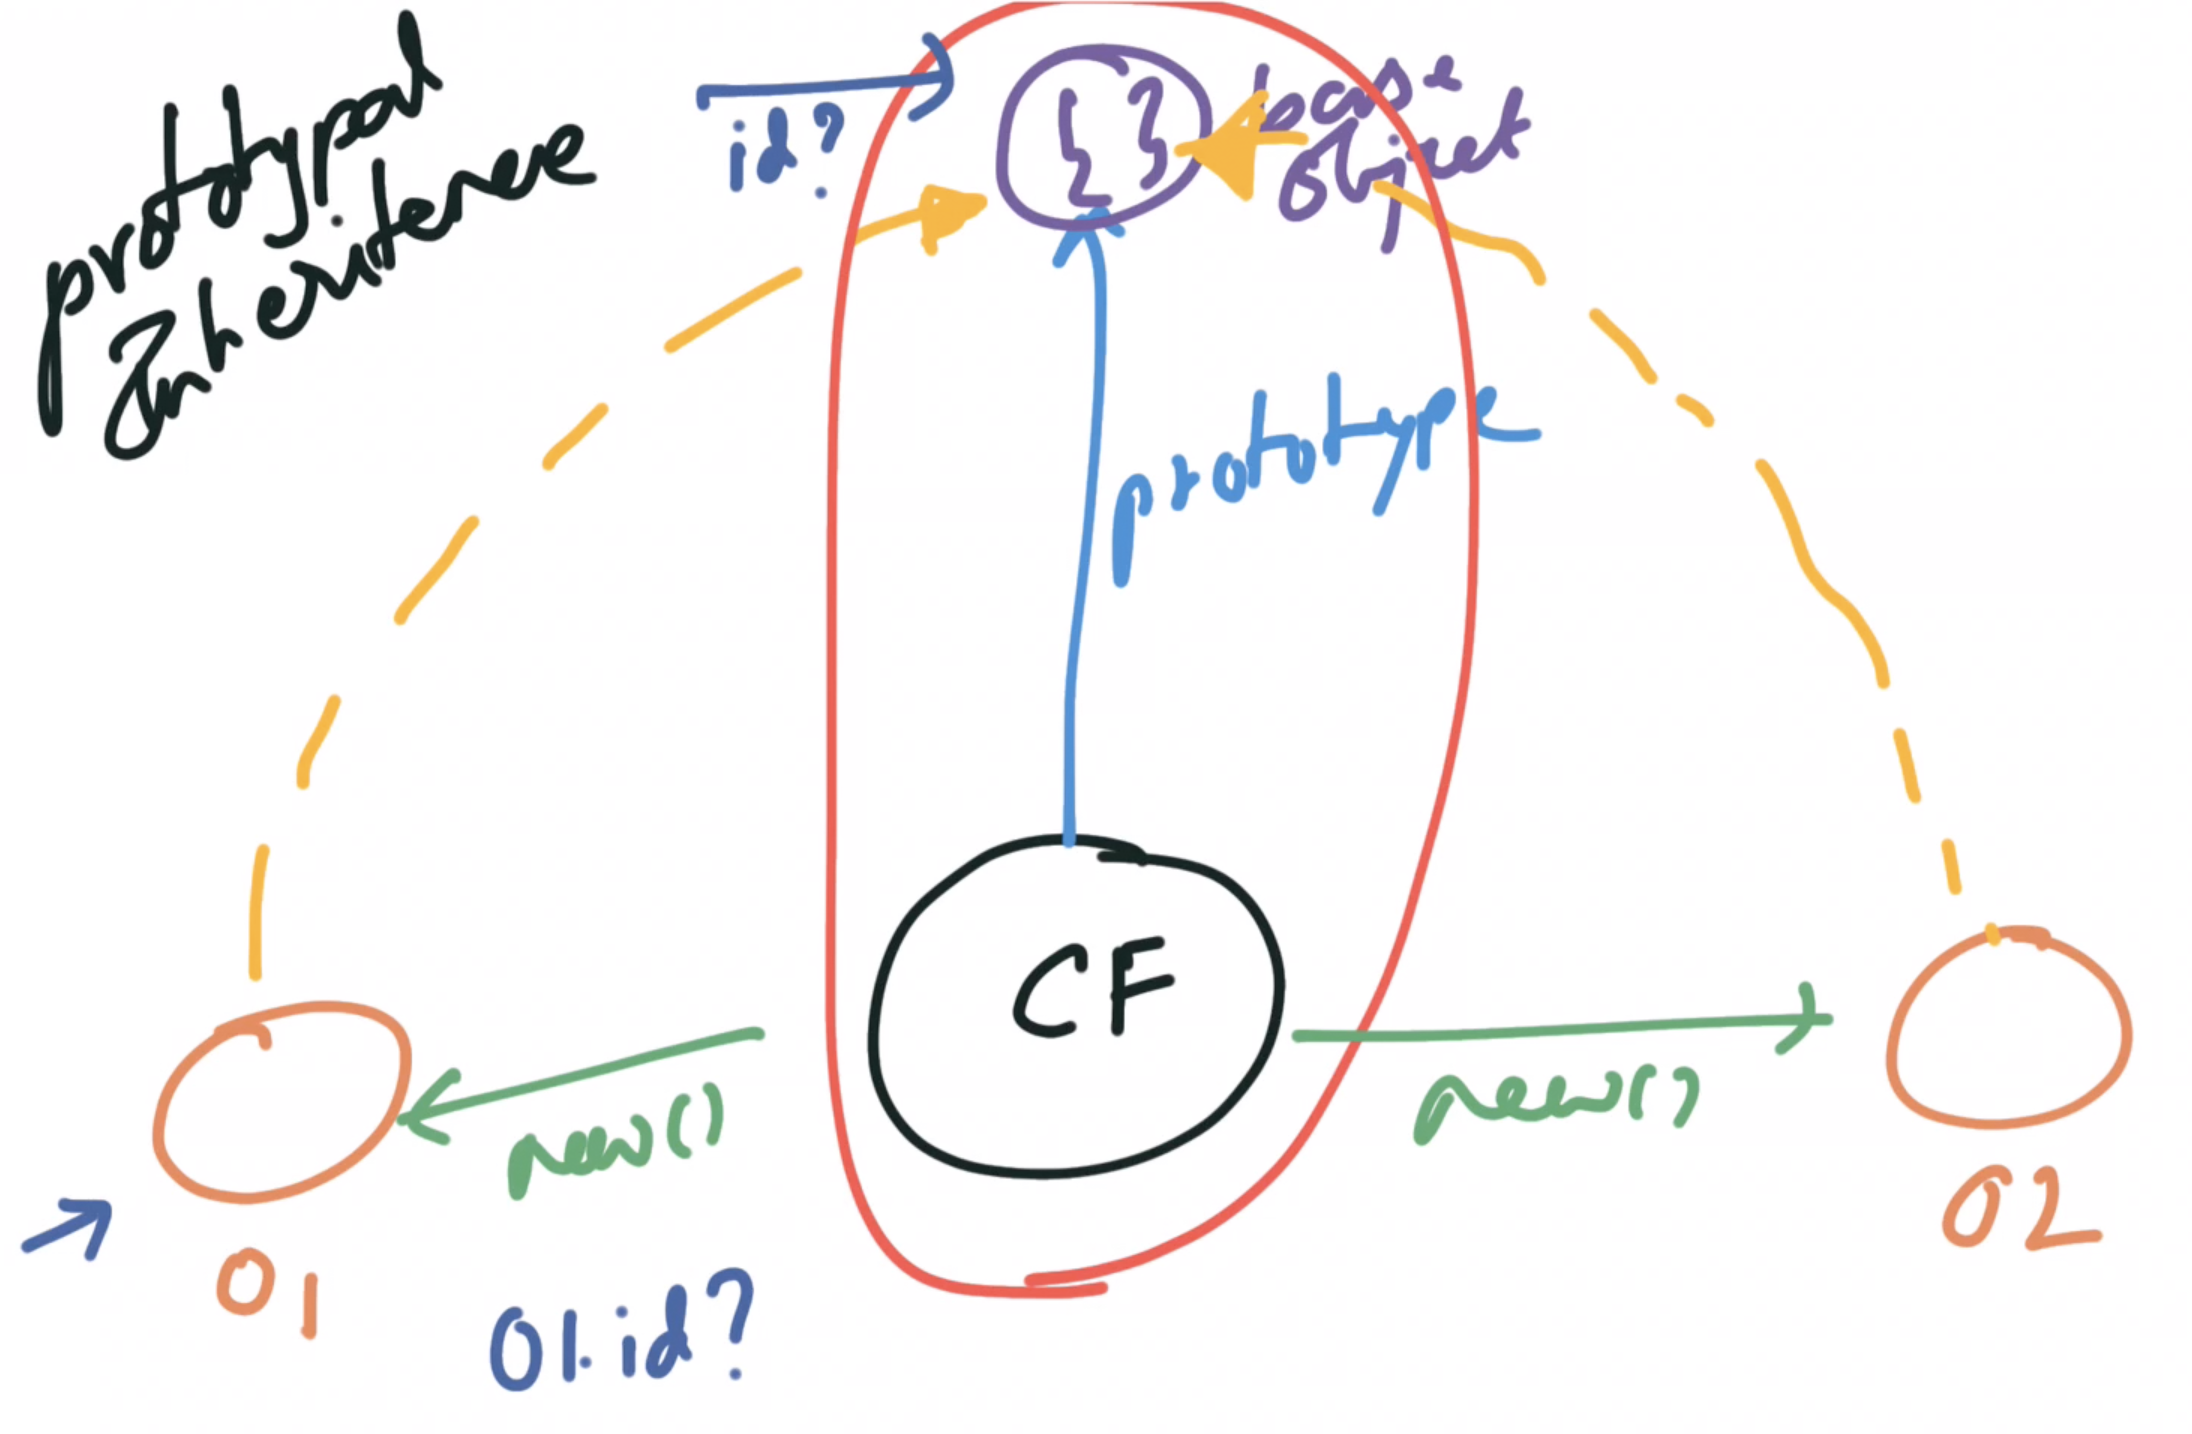 prototypal
Inheritence
id?
{ }
base
object
prototype
CF
new()
new()
O1
O2
O1.id?